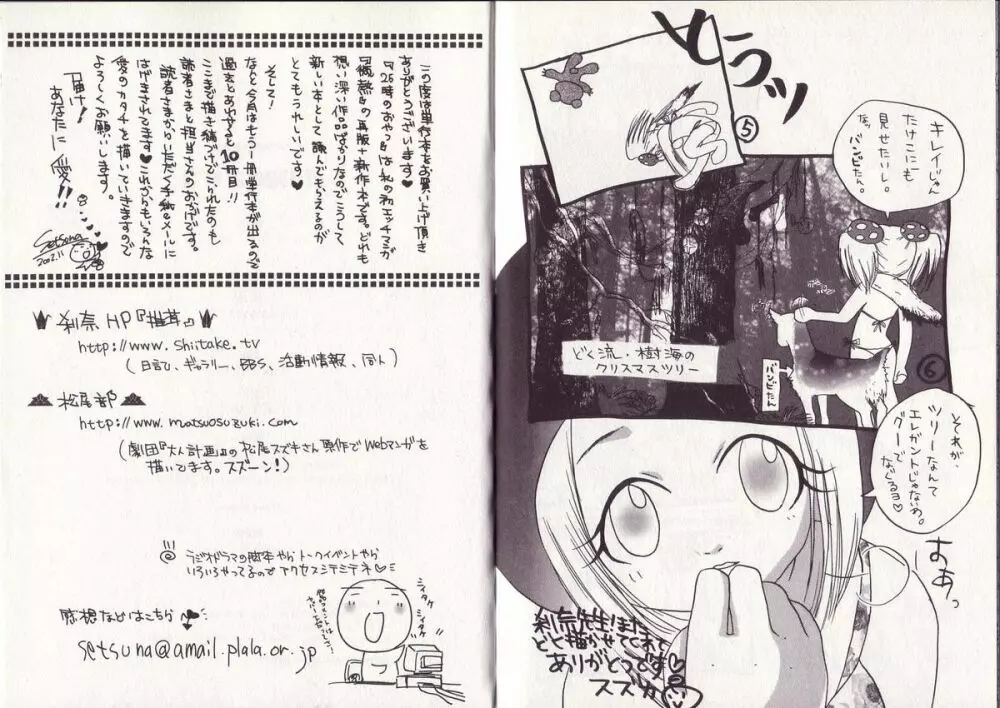 とうッ
⑤
キレイじゃ
たけこにも
見せたいし。
なァ
バンビたん。
どく流・樹海の
クリスマスツリー
バンビたん
⑥
それが、
ツリーなんて
エレガントじゃないわ。
グーで
なぐるヨ♡
すあっ
刹奈先生!また
ありがとうです♡
スズカ
この度は単行本をお買い上げ頂き
ありがとうございます!
『26時のおやつ』はれの初エッチマンガ
『微熱』の再版+新作本です。どれも
想い深い作品ばかりなのでこうして
新しい本として読んでもらえるのが
とてもうれしいです♥
そして!
なんと今月はもう1冊単行本が出るので
過去とあわせると10冊目!!
ここまで描き続けてこられたのも
読者さまと担当さんのおかげです。
読者さまからいただく手紙やメールに
はげまされてます♥これからもいろんな
愛のカタチを描いていきますので
よろしくお願いします。
届け!
あなたに愛!!
Setsuna
2002.11
刹奈HP『椎茸』
http://www.shiitake.tv
(日記、ギャラリー、BBS、活動情報、同人)
松尾部
http://www.matsuosuzuki.com
(劇団『大人計画』の松尾スズキさん原作でWebマンガを
描いてます。スズーン!)
ラジオドラマの脚本やらトークイベントやら
いろいろやってるのでアクセスシテミテネ♡
感想などはこちら
setsuna@amail.plala.or.jp
シイタケ
シイタケ